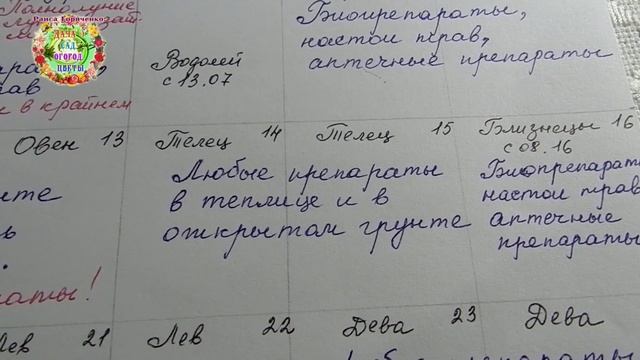 Раиса Горяченко
ДАЧА
САД
ОГОРОД
ЦВЕТЫ
Полнолуние
в крайнем
Водолей
с 13.07
Биопрепараты,
настои трав,
аптечные препараты
Овен 13
Телец 14
Телец 15
Близнецы 16
с 08.16
Любые препараты
в теплице и в
открытом грунте
Биопрепараты
настои трав
аптечные
препараты
Лев 21
Лев 22
Дева 23
Дева